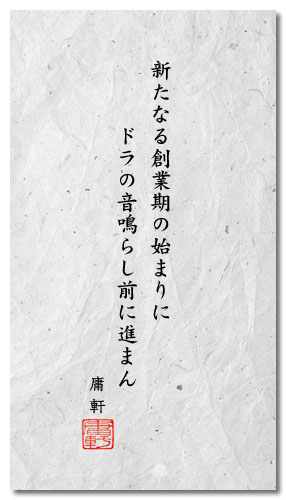 新たなる創業期の始まりに
ドラの音鳴らし前に進まん
庸軒
庸軒